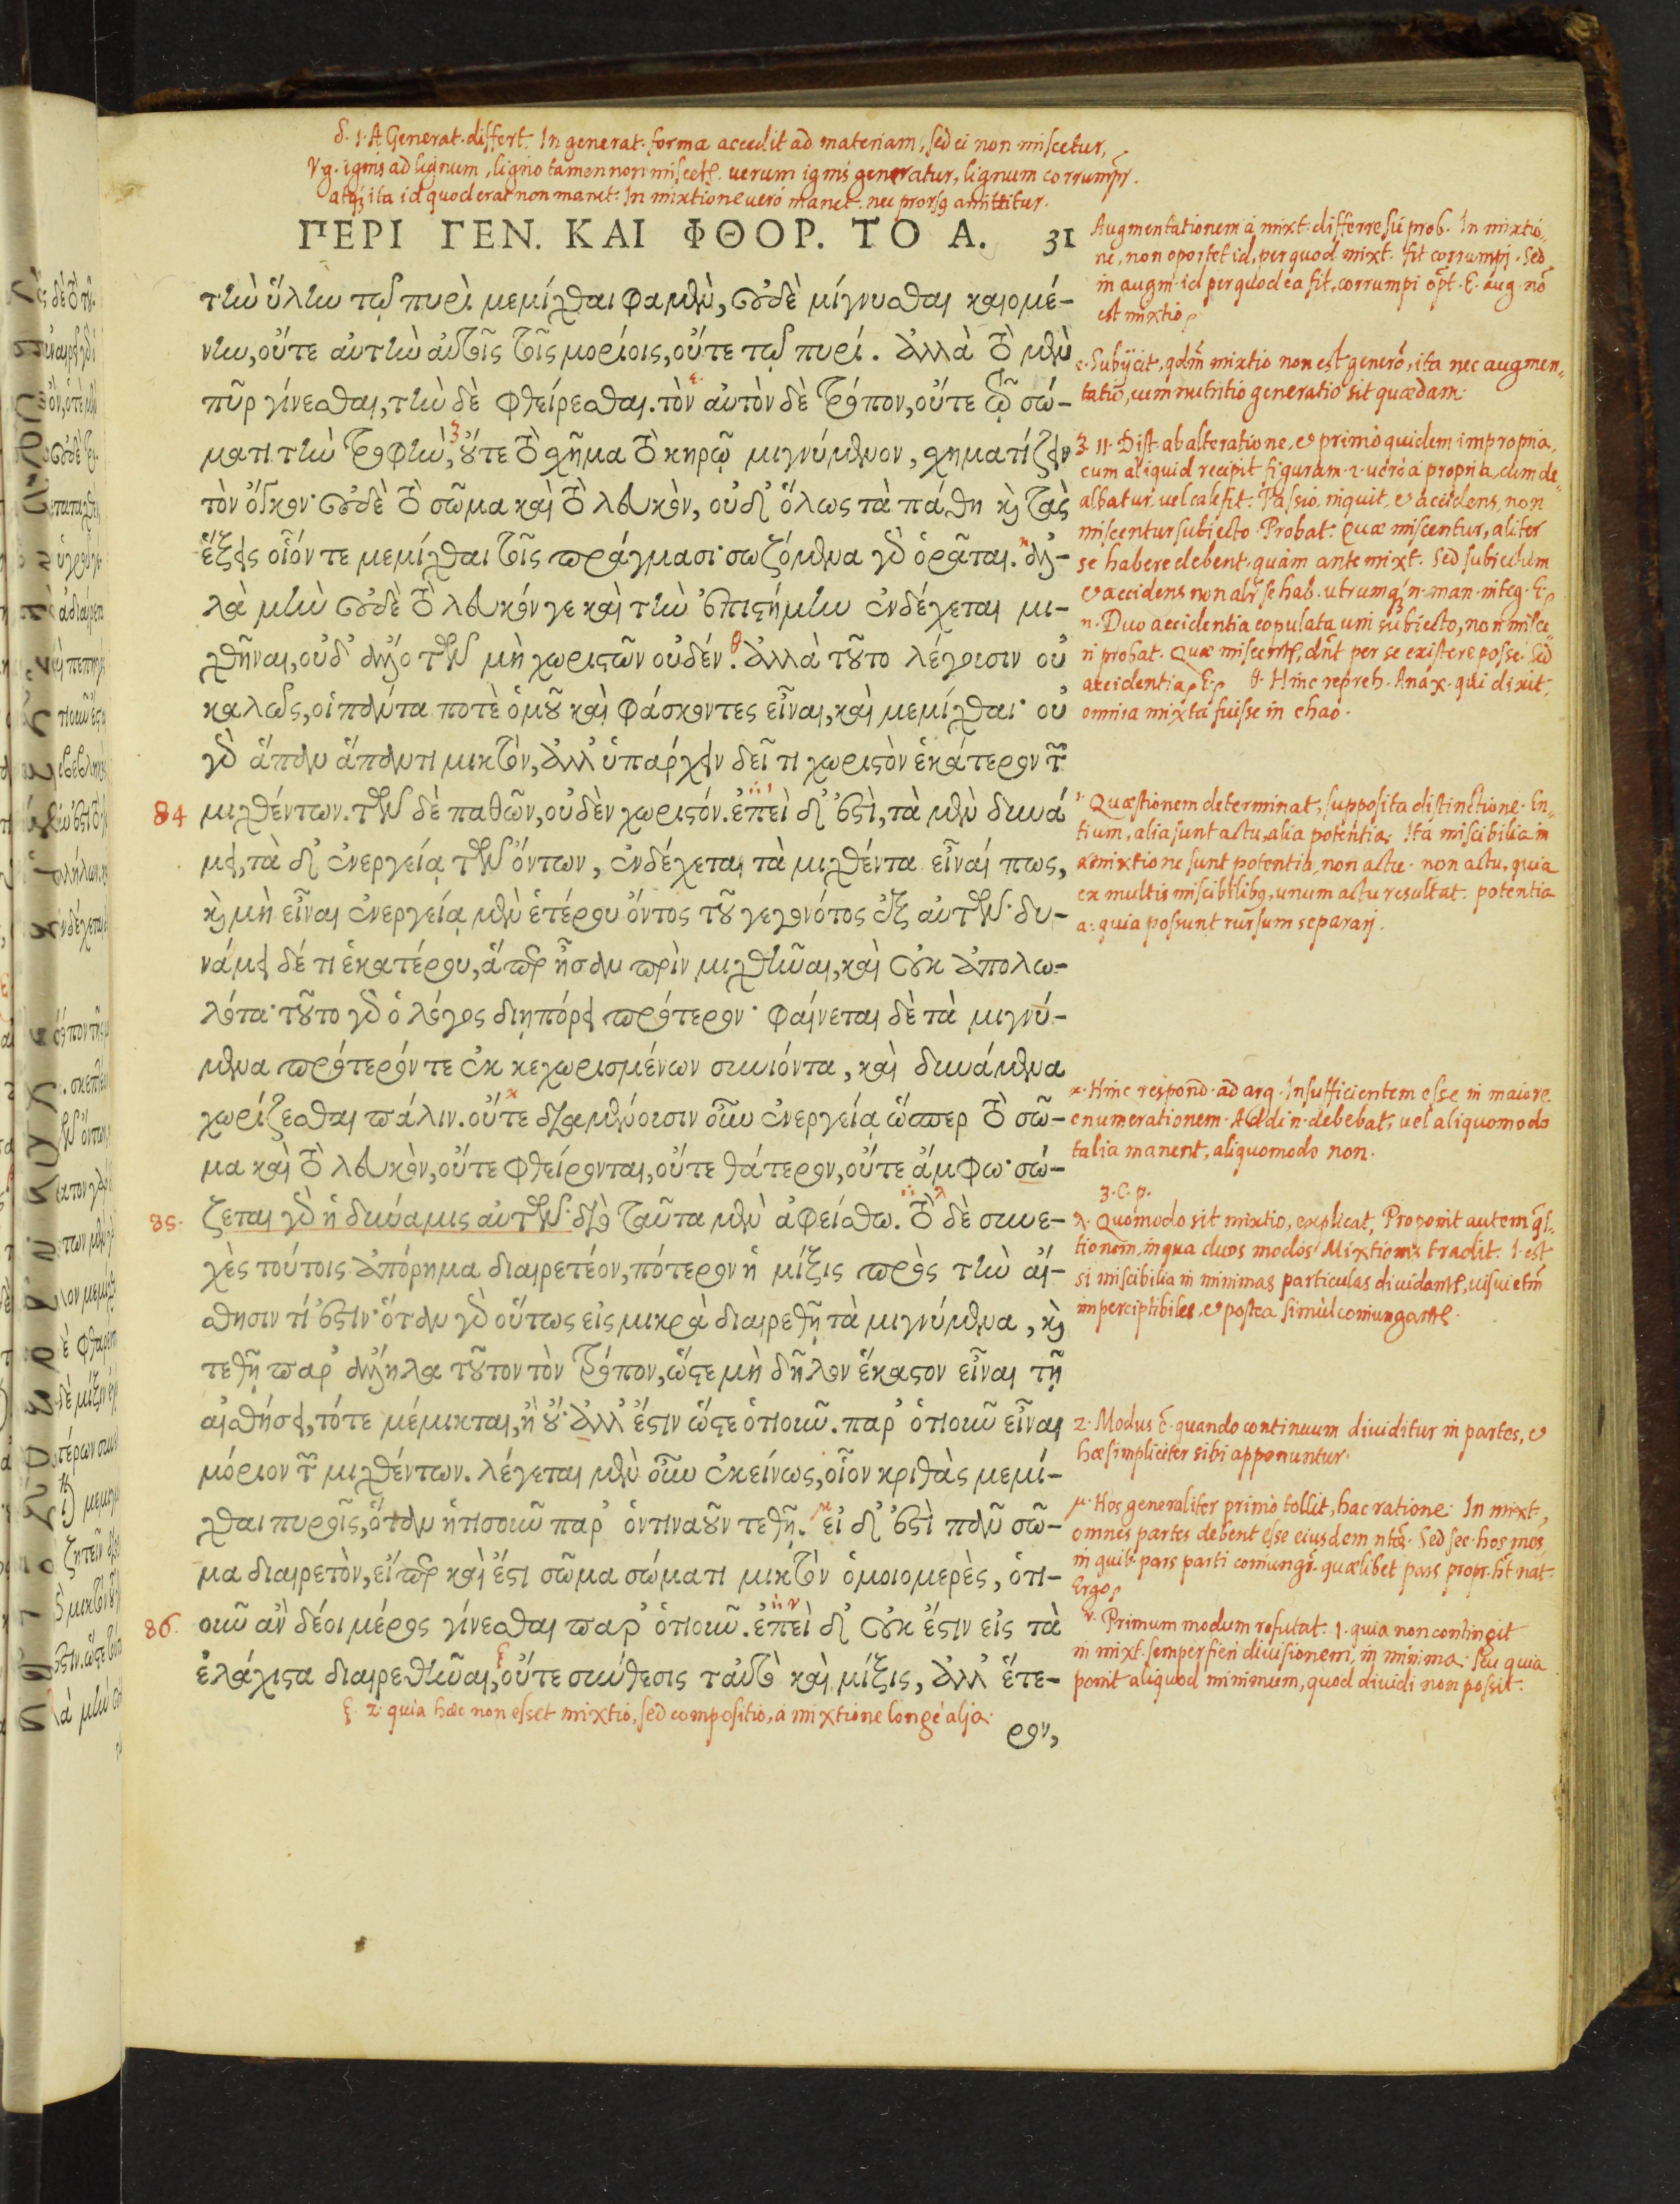 δ. 1. A Generat. differt. In generat. forma accedit ad materiam, sed ei non miscetur,
Vg. ignis ad lignum, ligno tamen non miscetr. uerum ignis generatur, lignum corrumpr.
atq; ita id quod erat non manet. In mixtione uerò manet. nec prorsq amittitur.
ΠΕΡΙ ΓΕΝ. ΚΑΙ ΦΘΟΡ. ΤΟ Α. 31
τὴν ὕλην τῷ πυρὶ μεμίχθαι φαμὲν, οὐδὲ μίγνυσθαι καιομέ-
νην, οὔτε αὐτὴν αὐτοῖς τοῖς μορίοις, οὔτε τῷ πυρί. ἀλλὰ τὸ μὲν
πῦρ γίνεσθαι, τὴν δὲ φθείρεσθαι. τὸν αὐτὸν δὲ τρόπον, οὔτε τῷ σώ-
ματι τὴν τροφὴν, οὔτε τὸ σχῆμα τὸ κηρῷ μιγνύμενον, σχηματίζειν
τὸν ὄγκον· οὐδὲ τὸ σῶμα καὶ τὸ λευκὸν, οὐδ' ὅλως τὰ πάθη καὶ τὰς
ἕξεις οἷόν τε μεμίχθαι τοῖς πράγμασι· σωζόμενα γὰρ ὁρᾶται. ἀλ-
λὰ μὴν οὐδὲ τὸ λευκόν γε καὶ τὴν ἐπιστήμην ἐνδέχεται μι-
χθῆναι, οὐδ' ἄλλο τῶν μὴ χωριστῶν οὐδέν. ἀλλὰ τοῦτο λέγουσιν οὐ
καλῶς, οἱ πάντα ποτὲ ὁμοῦ καὶ φάσκοντες εἶναι, καὶ μεμίχθαι· οὐ
γὰρ ἅπαν ἅπαντι μικτὸν, ἀλλ' ὑπάρχειν δεῖ τι χωριστὸν ἑκάτερον τῶν
84 μιχθέντων. τῶν δὲ παθῶν, οὐδὲν χωριστόν. ἐπεὶ δ' ἐστὶ, τὰ μὲν δυνά
μει, τὰ δ' ἐνεργείᾳ τῶν ὄντων, ἐνδέχεται τὰ μιχθέντα εἶναί πως,
καὶ μὴ εἶναι ἐνεργείᾳ μὲν ἑτέρου ὄντος τοῦ γεγονότος ἐξ αὐτῶν· δυ-
νάμει δέ τι ἑκατέρου, ἅπερ ἦσαν πρὶν μιχθῆναι, καὶ οὐκ ἀπολω-
λότα· τοῦτο γὰρ ὁ λόγος διηπόρει πρότερον· φαίνεται δὲ τὰ μιγνύ-
μενα πρότερόν τε ἐκ κεχωρισμένων συνιόντα, καὶ δυνάμενα
χωρίζεσθαι πάλιν. οὔτε διαμένουσιν οὖν ἐνεργείᾳ ὥσπερ τὸ σῶ-
μα καὶ τὸ λευκὸν, οὔτε φθείρονται, οὔτε θάτερον, οὔτε ἄμφω· σώ-
85. ζεται γὰρ ἡ δύναμις αὐτῶν· διὸ ταῦτα μὲν ἀφείσθω. τὸ δὲ συνε-
χὲς τούτοις ἀπόρημα διαιρετέον, πότερον ἡ μίξις πρὸς τὴν αἴ-
σθησιν τί ἐστιν· ὅταν γὰρ οὕτως εἰς μικρὰ διαιρεθῇ τὰ μιγνύμενα, καὶ
τεθῇ παρ' ἄλληλα τοῦτον τὸν τρόπον, ὥστε μὴ δῆλον ἕκαστον εἶναι τῇ
αἰσθήσει, τότε μέμικται, ἢ οὔ· ἀλλ' ἔστιν ὥστε ὁτιοῦν. παρ' ὁτιοῦν εἶναι
μόριον τῶν μιχθέντων. λέγεται μὲν οὖν ἐκείνως, οἷον κριθὰς μεμί-
χθαι πυροῖς, ὅταν ἡτισοῦν παρ' ὁντιναοῦν τεθῇ. εἰ δ' ἐστὶ πᾶν σῶ-
μα διαιρετὸν, εἴπερ καὶ ἔστι σῶμα σώματι μικτὸν ὁμοιομερὲς, ὁτι-
86. οῦν ἂν δέοι μέρος γίνεσθαι παρ' ὁτιοῦν. ἐπεὶ δ' οὐκ ἔστιν εἰς τὰ
ἐλάχιστα διαιρεθῆναι, οὔτε σύνθεσις ταὐτὸ καὶ μίξις, ἀλλ' ἕτε-
ρον,
ξ. 2. quia hæc non esset mixtio, sed compositio, à mixtione longè alia.
Augmentationem à mixt. differre sic prob. In mixtio,,
ne, non oportet id, per quod mixt. fit corrumpi. Sed
in augm. id per quod ea fit, corrumpi opt. E. aug. no
est mixtio
ε. Subijcit, qdm mixtio non est genero, ita nec augmen,,
tatio, cum nutritio generatio sit quædam.
ζ. 11. Dist. ab alteratione, & primò quidem impropria,
cum aliquid recipit figuram. 2. uerò à propria, cum de,,
albatur, uel calefit. Passio, inquit, & accidens, non
miscentur subiecto. Probat. Quæ miscentur, aliter
se habere debent, quàm ante mixt. Sed subiectum
& accidens non alr se hab. utrumq; n. man. integ. E
η. Duo accidentia copulata uni subiecto, non misce,,
ri probat. Quæ miscentr, dnt per se existere posse. Sed
accidentia E θ. Hinc repreh. Anax. qui dixit,
omnia mixta fuisse in chao.
ι. Quæstionem determinat, supposita distinctione. En,,
tium, alia sunt actu, alia potentia. Ita miscibilia in
mixtione sunt potentia, non actu. non actu, quia
ex multis miscibilibq, unum actu resultat. potentia
a. quia possunt rursum separari.
κ. Hinc respond. ad arg. Insufficientem esse in maiore
enumerationem. Addi n. debebat, uel aliquomodo
talia manent, aliquomodo non.
3. C. p.
λ. Quomodo sit mixtio, explicat, Proponit autem qs,,
tionem, in qua duos modos Mixtionis tradit. 1. est
si miscibilia in minimas particulas diuidantr, uisui etm
imperceptibiles, & postea simùl coniungantr.
2. Modus ē. quando continuum diuiditur in partes, &
hæ simpliciter sibi apponuntur.
μ. Hos generaliter primò tollit, hac ratione. In mixt.,
omnes partes debent esse eiusdem ntæ. Sed sec. hos mos
in quib. pars parti coniungr. quælibet pars propr. ht nat.
Ergo
ν. Primum modum refutat. 1. quia non contingit
in mixt. semper fieri diuisionem, in minima. seu quia
ponit aliquod minimum, quod diuidi non possit.